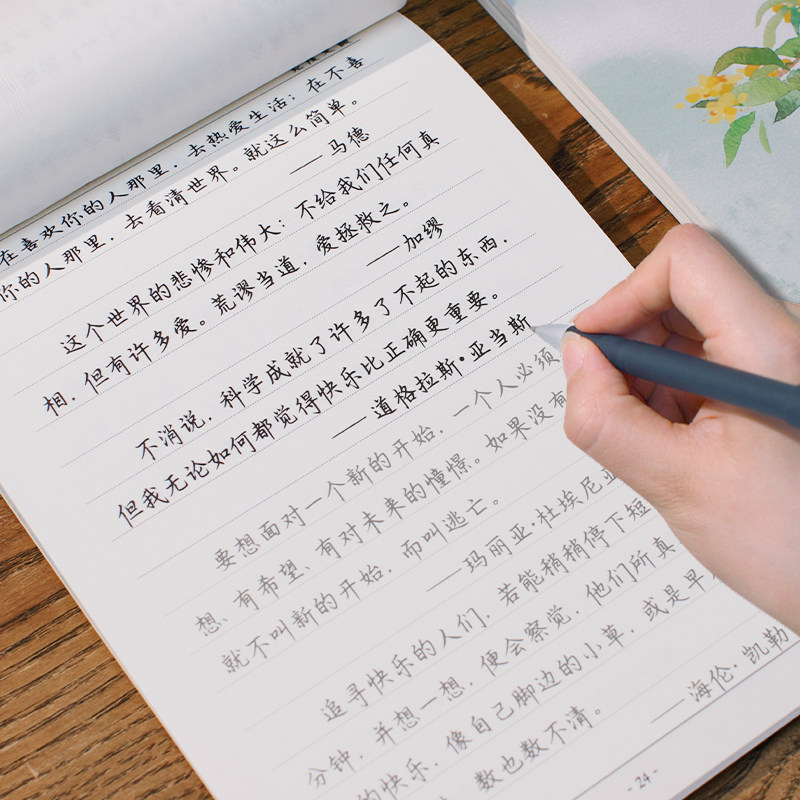 在喜欢你的人那里，去热爱生活；在不喜
你的人那里，去看清世界。就这么简单。
——马德
这个世界的悲惨和伟大：不给我们任何真
相，但有许多爱。荒谬当道，爱拯救之。
——加缪
不消说，科学成就了许多了不起的东西，
但我无论如何都觉得快乐比正确更重要。
——道格拉斯·亚当斯
要想面对一个新的开始，一个人必须
想、有希望、有对未来的憧憬。如果没有
就不叫新的开始，而叫逃亡。
——玛丽亚·杜埃尼亚
追寻快乐的人们，若能稍稍停下短
分钟，并想一想，便会察觉，他们所真
的快乐，像自己脚边的小草，或是早
数也数不清。
——海伦·凯勒
-24-